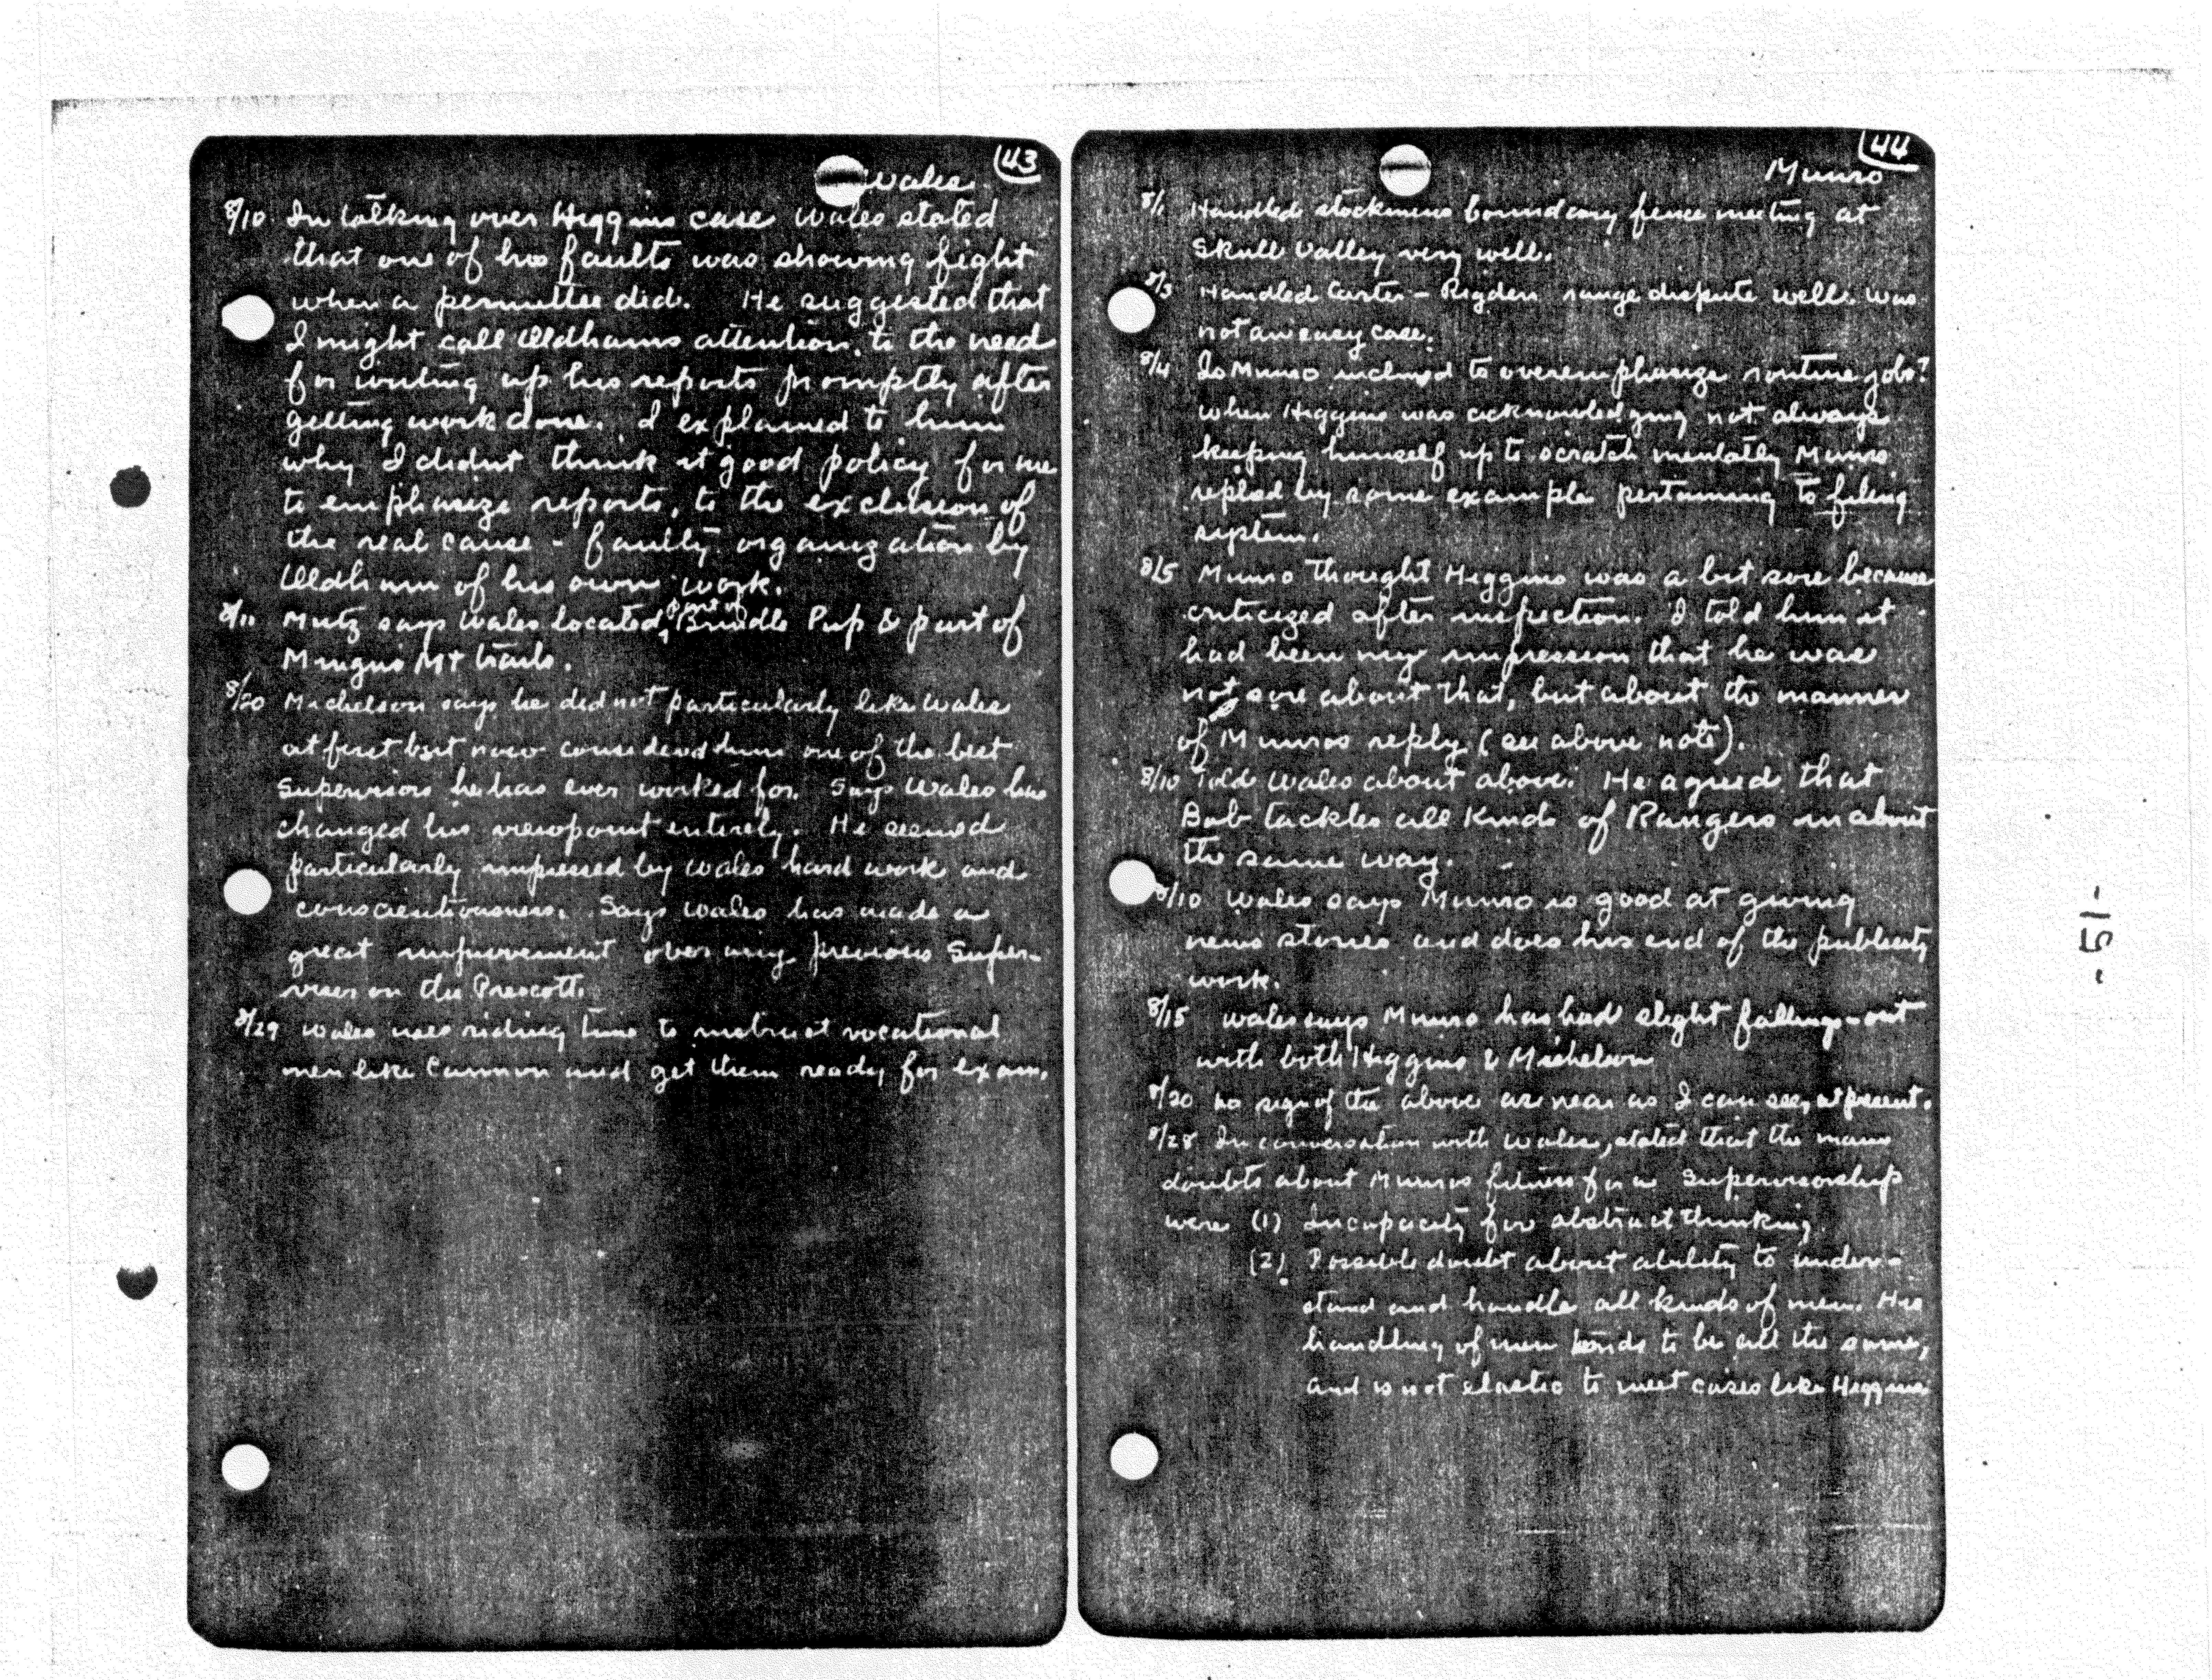 43
Wales
8/10 In talking over Higgins case Wales stated
that one of his faults was showing fight
when a permittee did. He suggested that
I might call Oldhams attention, to the need
for writing up his reports promptly after
getting work done. I explained to him
why I didnt think it good policy for me
to emphasize reports, to the exclusion of
the real cause - faulty organization by
Oldham of his own work.
8/11 Mutz says Wales located part of Brindle Pup & part of
Mingus Mt trails.
8/20 Michelson says he did not particularly like Wales
at first but now considered him one of the best
Supervisors he has ever worked for. Says Wales has
changed his viewpoint entirely. He seemed
particularly impressed by Wales hard work and
conscientiousness. Says Wales has made a
great improvement over any previous Super-
visor on the Prescott.
8/29 Wales uses riding time to instruct vocational
men like Cannon and get them ready for exam.
44
Munro
8/1 Handled stockmens boundary fence meeting at
Skull Valley very well.
8/3 Handled Carter - Rigden range dispute well. Was
not an easy case.
8/4 Is Munro inclined to overemphasize routine jobs?
When Higgins was acknowledging not always
keeping himself up to scratch mentally Munro
replied by some example pertaining to filing
system.
8/5 Munro thought Higgins was a bit sore because
criticized after inspection. I told him it
had been my impression that he was
not sore about that, but about the manner
of Munros reply (see above note).
8/10 Told Wales about above. He agreed that
Bob tackles all kinds of Rangers in about
the same way.
8/10 Wales says Munro is good at giving
news stories and does his end of the publicity
work.
8/15 Wales says Munro has had slight falling-out
with both Higgins & Michelson
8/20 No sign of the above as near as I can see, at present.
8/28 In conversation with Wales, stated that the main
doubts about Munros fitness for a Supervisorship
were (1) Incapacity for abstract thinking.
(2) Possible doubt about ability to under-
stand and handle all kinds of men. His
handling of men tends to be all the same,
and is not elastic to meet cases like Higgins
-51-